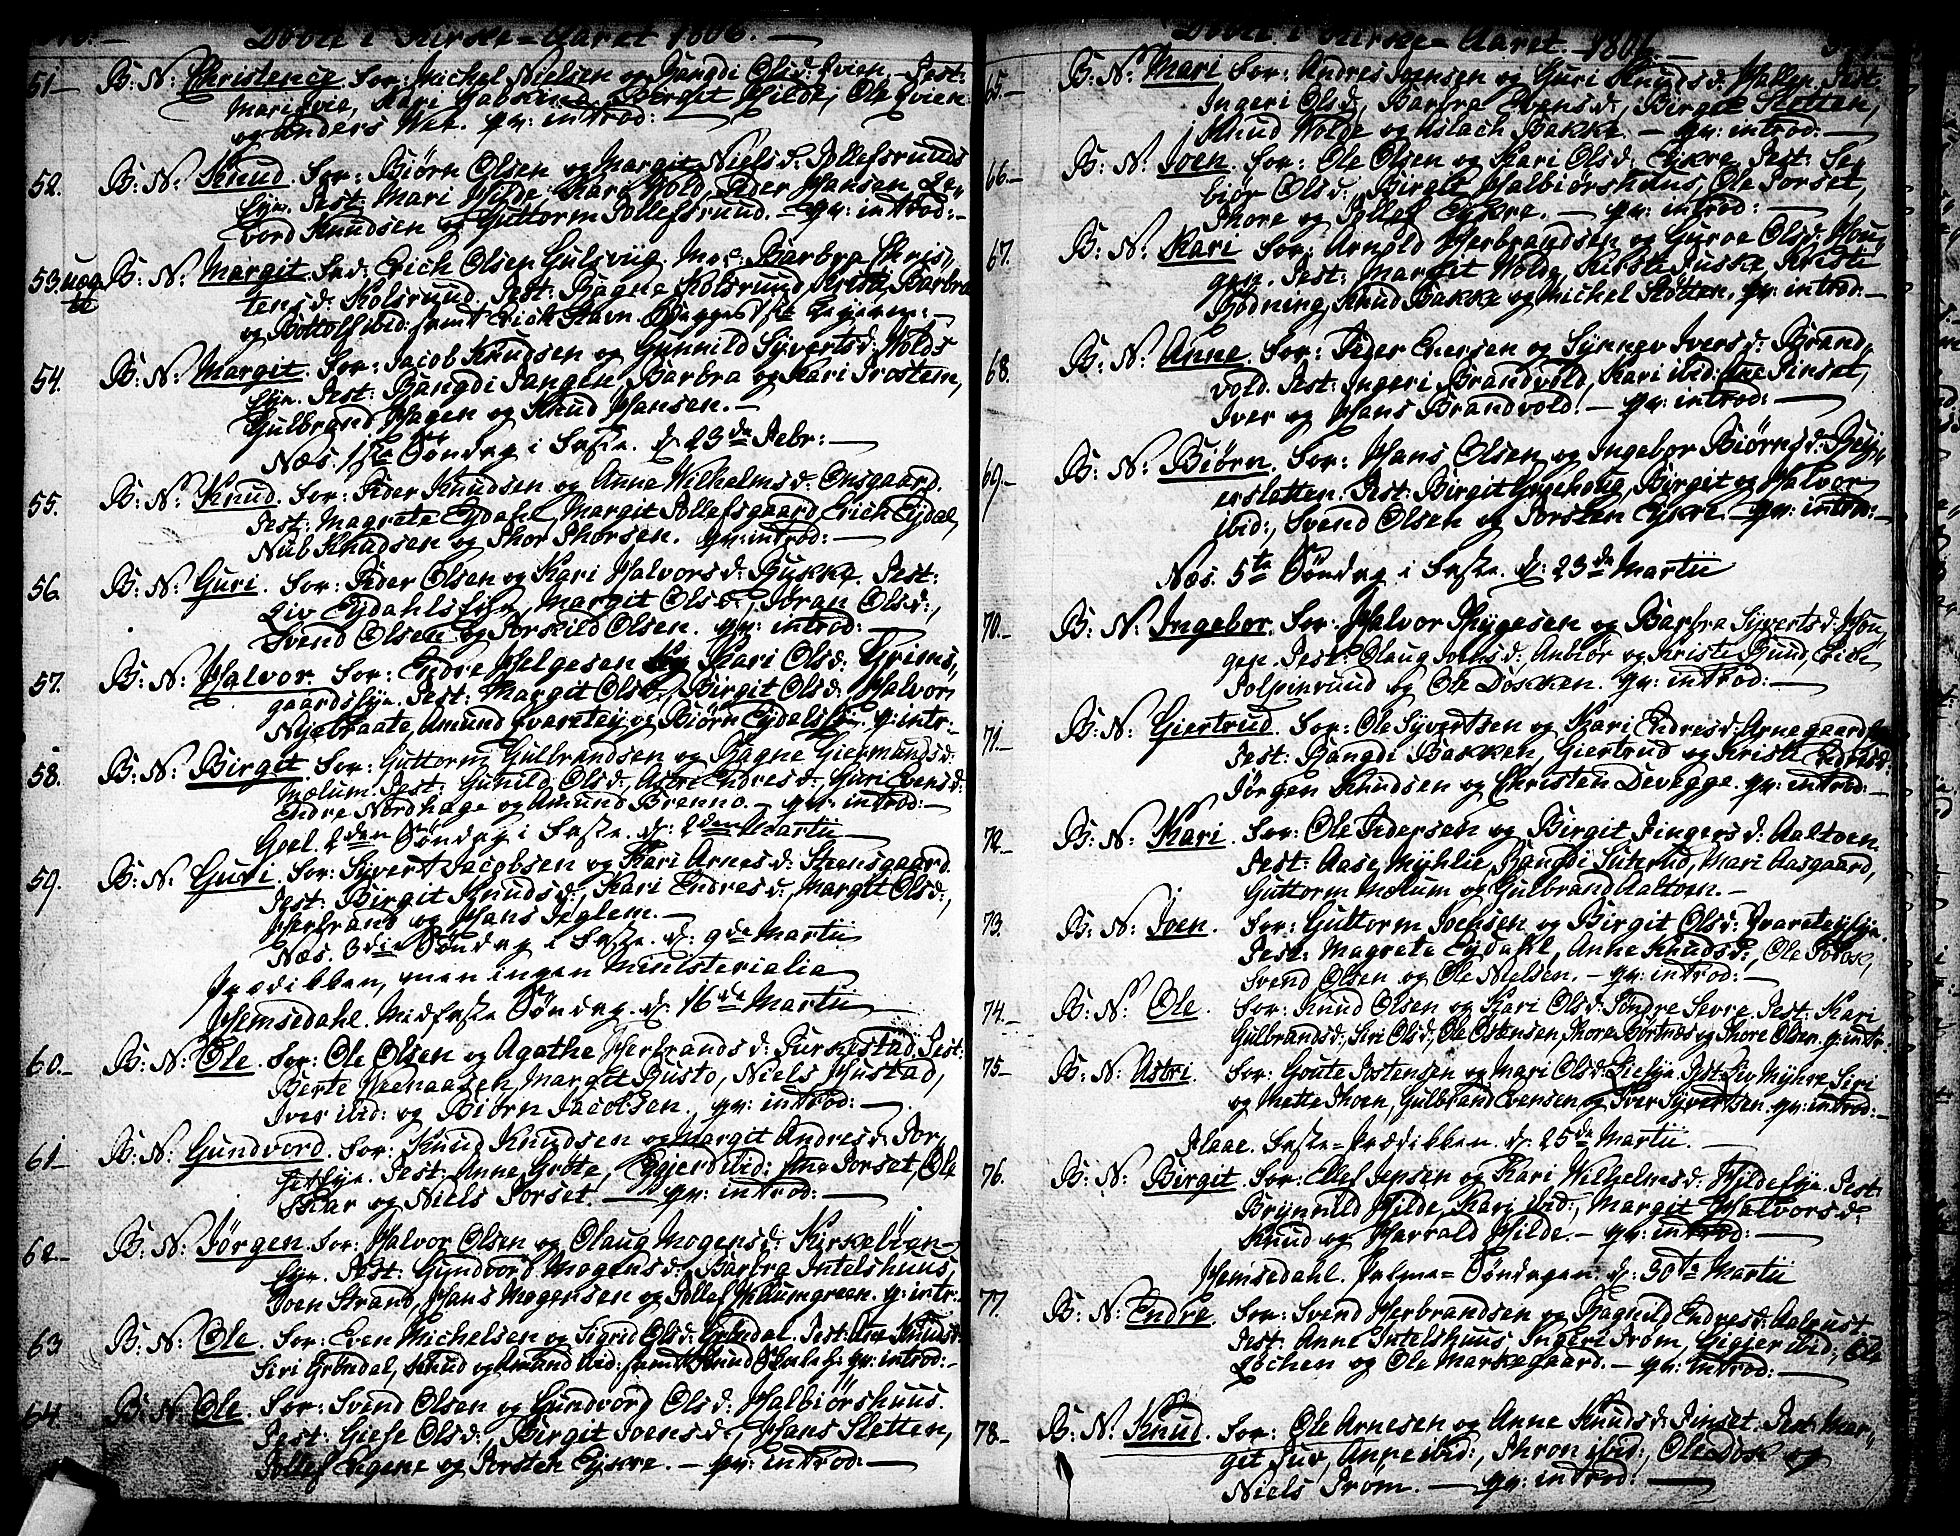 Døbte i Kirke-Aaret 1806.
51 B: N: Christence. For: Michel Nielsen og Bangdi Olsd: Qvien. Test:
Mari Qvie, Kari Gabskind, Birgit Hilde, Ole Qvien
og Anders Wet. qv: introd:
52. B: N: Knud. For: Biørn Olsen og Margit Nielsd: Tollefsruuds
Eje. Test: Mari Hilde, Kari Hold, Peder Hansen, Le-
vord Knudsen og Guttorm Tollefsruud. - qv: introd:
53. uægte B: N: Margit. Fad: Erich Olsen Gulsviig. Moe: Barbra Chris-
tensd: Kolsrund. Test: Bagne Kolsrund, Kristi, Barbra
og Bottolf ibid: samt Erich Stavn. Begges 1ste Lejerm:
54. B: N: Margit. For: Jacob Knudsen og Gunnild Syvertsd: Wolds
Eje. Test: Bangdi Tangen, Barbra og Kari Trostem,
Gulbrand Hagen og Knud Hansen.
Næs. 1ste Søndag i Faste. d: 23de Febr:
55. B: N: Knud. For: Peder Knudsen og Anne Wilhelmsd: Onsgaard.
Test: Magrete Eydahl, Margit Tollefsgaard, Erich Eydal,
Nub Knudsen og Thor Thorsen. qv: introd:
56. B: N: Guri. For: Peder Olsen og Kari Halvorsd: Bukke. Test:
Liv Eydahlseje, Margit Olsd:, Joran Olsd:,
Svend Olsen og Torkild Olsen. qv: introd:
57. B: N: Halvor. For: Endre Helgesen og Kari Olsd: Grims-
gaardseje. Test: Margit Olsd:, Birgit Olsd: Halvor
Nyebraate, Amund Svaretej og Biørn Eydalseje. q: intr:
58. B: N: Birgit. For: Guttorm Gulbrandsen og Bagne Giermundsd:
Mælum. Test: Gunild Olsd:, Astri Endresd:, Guri Evensd:
Endre Nordhage og Amund Brenno. - qv: introd:
Goel. 2den Søndag i Faste. d: 2den Martii
59. B: N: Guri. For: Syvert Jacobsen og Kari Arnesd: Steensgaard.
Test: Birgit Knudsd:, Kari Endresd:, Margit Olsd:,
Herbrand og Hans Teglem.
Næs. 3die Søndag i Faste. d: 9de Martii
Prædikken, men ingen Ministerialia
Hemsedahl. Midfaste Søndag d: 16de Martii
60. B: N: Ole. For: Ole Olsen og Agathe Herbrandsd: Turkestad. Test:
Berte, Margit Justo, Niels Hustad,
Iver ibid: og Biørn Jacobsen. qv: introd:
61 B: N: Gundvord. For: Knud Knudsen og Margit Andresd: Tor-
setEje. Test: Anne Grøte, ibid: Ane Torset, Ole
Skar og Niels Torset. qv: introd:
62. B: N: Jørgen. For: Halvor Olsen og Olaug Mogensd: Kirkebøen-
Eje. Test: Gundvord Mogensd: Barbra Intelshuus,
Joen Strand, Hans Mogensen og Tollef Kaumgreen. q: intr:
63 B: N: Ole. For: Even Michelsen og Sigrid Olsd: Grøndal. Test: Ane Knudsd:
Siri Grøndal, Knud og Amand ibid: samt Knud. qv: introd:
64. B: N: Ole. For: Svend Olsen og Gundvord Olsd: Halbiørshuus.
Test: Giese Olsd:, Birgit Joensd:, Hans Sletten,
Tollef Engene og Torsten Eykre. - qv: introd:
Døbte i Kirke-Aaret 1806.
65. B: N: Mari For: Andres Joensen og Guri Knudsd: Hallen. Test:
Ingeri Olsd:, Barbra Evensd:, Birgit Slotten,
Knud Wolde og Aslach Bakke. - qv: introd:
66. B: N: Joen. For: Ole Olsen og Kari Olsd: Eykre. Test: Se-
biør Olsd:, Birgit Halbiørshuus, Ole Torset,
Thore og Tollef Eykre. - qv: introd:
67. B: N: Kari For: Arnold Herbrandsen og Guroe Olsd: Hou-
gen. Test: Margit Wold, Kirsti Ruske, Kristi
Bødning, Knud Bakke og Michel Slotten. qv: introd:
68. B: N: Anne. For: Peder Eversen og Synnev Iversd: Brand-
vold. Test: Ingeri Brandvold, Kari ibid: Ane Tinset,
Iver og Hans Brandvold. - qv: introd:
69. B: N: Biørn. For: Hans Olsen og Ingebor Biørnsd: Rey-
ersletten. Test: Birgit, Birgit og Halvor
ibid:, Svend Olsen og Torsten Eykre. qv: introd:
Næs. 5te Søndag i Faste. d: 23de Martii
70. B: N: Ingebor. For: Halvor Thygesen og Barbra Syvertsd: Hou-
gen. Test: Olaug Joensd: Anbiør og Kristi Rund, Erich
Tolpinrund og Ole Dokken. qv: introd:
71. B: N: Giertrud. For: Ole Syvertsen og Kari Endresd: Arnegaard
Test: Bangdi Bakken, Giertrud og Kristi Endresd:
Jørgen Knudsen og Christen Devegge. qv: introd:
72. B: N: Kari. For: Ole Pedersen og Birgit Fingersd: Aaltoen.
Test: Aase Myhlie, Bangdi Suterud, Mari Aasgaard,
Guttorm Mælum og Gulbrand Aaltoen.
73. B: N: Joen. For: Guttorm Joensen og Birgit Olsd: Svaretejeje.
Test: Magrete Eydahl, Anne Knudsd:, Ole,
Svend Olsen og Ole Nielsen. - qv: introd:
74. B: N: Ole. For: Knud Olsen og Kari Olsd: Søndre Sevre. Test: Kari
Gulbrandsd:, Siri Olsd:, Ole Ostensen, Thore Børtnæs og Thore Olsen. q: intr:
75 B: N: Astri. For: Goute Tostensen og Mari Olsd: Lieeje. Test: Liv Myhre, Siri
og Mette Thoen, Gulbrand Evensen og Iver Syvertsen. qv: introd:
Flaae. Faste-Prædikken. d: 25de Martii.
76. B: N: Birgit. For: Ellef Jensen og Kari Wilhelmsd: Hildeeje. Test:
Brynnild Hilde, Kari ibid:, Margit Halvorsd:
Knud og Harrald Hilde. - qv: introd:
Hemsedahl. Palme-Søndagen. d: 30te Martii
77. B: N: Endre. For: Svend Herbrandsen og Bagnild Endresd: Aalrust.
Test: Anne Intelshuus, Ingeri Trøm, ibid:, Ole
Løchen og Ole Markegaard. - qv: introd:
78. B: N: Knud. For: Ole Arnesen og Anne Knudsd: Tinset. Test: Mar-
git Juv, Anne ibid:, Thron ibid:, Ole Dok og
Niels Trøm. - qv: introd: